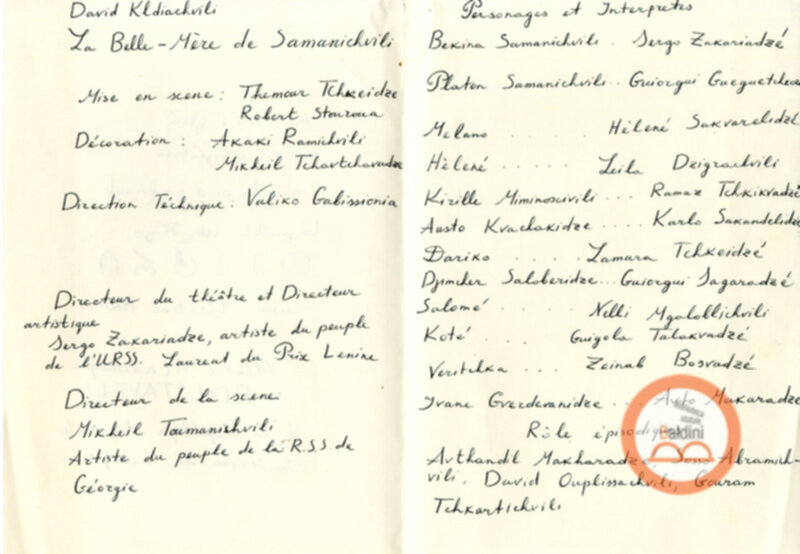 David Kldiachvili
La Belle-Mère de Samanichvili
Mise en scene: Themour Tchkeidze
Robert Stouroua
Décoration : Akaki Ramichvili
Mikheil Tchavtchavadze
Direction Téchnique: Valiko Gabissionia
Directeur du théâtre et Directeur
artistique
Sergo Zakariadze, artiste du peuple
de l'URSS. Laureat du Prix Lenine
Directeur de la scene:
Mikheil Toumanichvili
Artiste du peuple de la R.S.S. de
Géorgie
Personages et Interpretes
Bekina Samanichvili . Sergo Zakariadzé
Platon Samanichvili .. Guiorgui Gueguetchcori
Melano ..... Hèlené Sakvarelidzé
Hèlené ..... Leila Dzigrachvili
Kirille Miminoscivili ... Ramaz Tchkikvadzé
Austo Kvachakidze .... Karlo Sakandelidzé
Dariko .... Zamura Tchkeidzé
Djimcher Saloberidze... Guiorgui Sagaradzé
Salomé ..... Nelli Mgaloblichvili
Koté .... Guigola Talakvadzé
Veritchka ... Zeinab Bosvadzé
Ivane Gverdevanidze ... Avto Makaradze
Rôle épisodique
Avthandl Makharadzé, Sosso Abramich-
vili, David Ouplissachvili, Gouram
Tchkartichvili
biblioteca
statale
Baldini